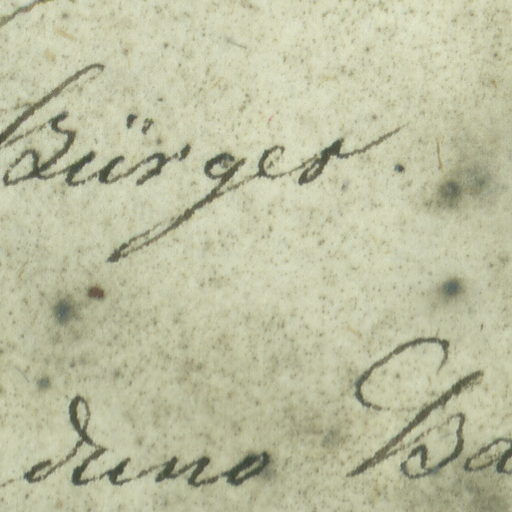 Bürger.
duno Ba